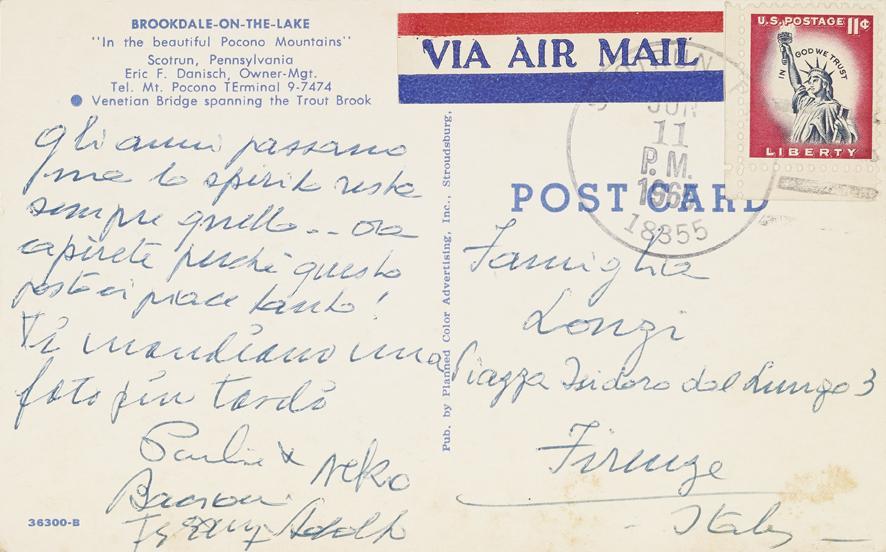 BROOKDALE-ON-THE-LAKE
"In the beautiful Pocono Mountains"
Scotrun, Pennsylvania
Eric F. Danisch, Owner-Mgt.
Tel. Mt. Pocono TErminal 9-7474
Venetian Bridge spanning the Trout Brook
Gli anni passano
ma lo spirito resta
sempre quello.. ora
capirete perchè questo
posto ci piace tanto!
Vi mandiamo una
foto più tardi
Pauline & Neko
36300-B
Pub. by Planned Color Advertising, Inc., Stroudsburg,
VIA AIR MAIL
U.S. POSTAGE 11¢
IN GOD WE TRUST
LIBERTY
JUN
11
P.M.
18355
POST CARD
Famiglia
Longi
Piazza Isidoro del Lungo 3
Firenze
Italy